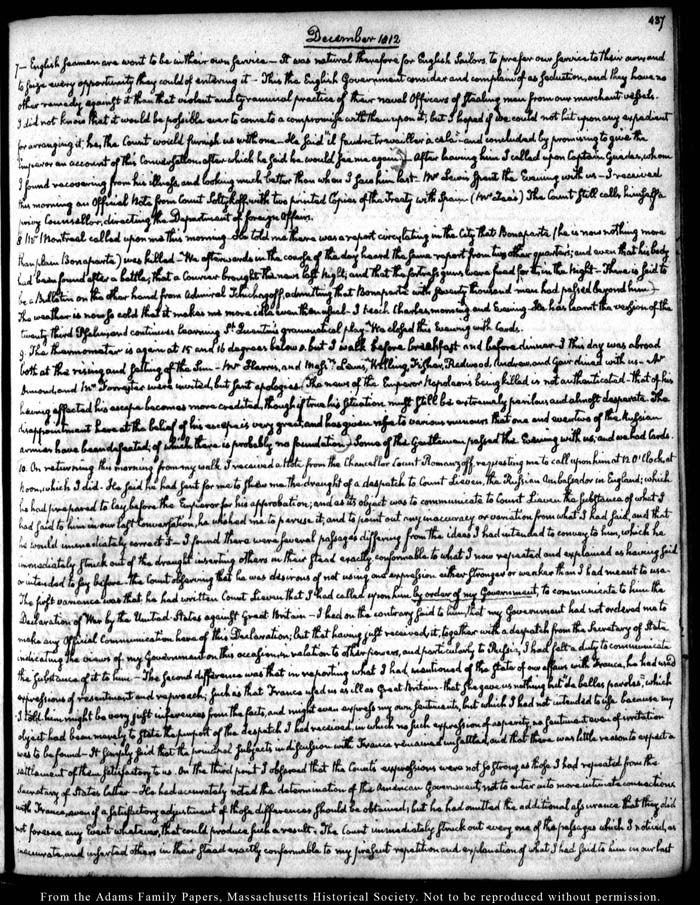 437
December 1812
7— English seamen are wont to be in their own service — It was natural therefore for English Sailors to prefer our service to their own, and
to seize every opportunity they could of entering it — This the English Government consider and complain of as seduction, and they have no
other remedy against it than that violent and tyrannical practice of their naval Officers of stealing men from our merchant vessels.
I did not know that it would be possible ever to come to a compromise with them upon it; but I hoped if we could not hit upon any expedient
for arranging it, he, the Count would furnish us with one. He said "il faudra travailler à cela" and concluded by promising to give the
Emperor an account of this Conversation after which he said he would see me again. After having him I called upon Captain Guedes, whom
I found recovering from his illness, and looking much better than when I saw him last. Mr Lewis spent the Evening with us — I received
this morning an Official Note from Count Soltykoff, with two printed Copies of the Treaty with Spain (Mr Zea's) The Count still calls himself a
privy Counsellor, directing the Department of foreign Affairs.
8. Mr Montreal called upon me this morning. He told me there was a report circulating in the City that Bonaparte (he is now nothing more
than plain Bonaparte) was killed — He afterwards in the course of the day heard the same report from two other quarters; and even that his body
had been found after a battle; that a Courier brought the news last Night; and that the fortress guns were fired for it, in the Night — There is said to
be a Bulletin on the other hand from Admiral Tchichagoff, admitting that Bonaparte with seventy thousand men had passed beyond him)
The weather is now so cold that it makes me more chilly even than usual. I teach Charles morning and Evening. He has learnt the version of the
twenty third Psalm, and continues learning St Quentin's grammatical play. We closed this Evening with Cards.
9. The thermometer is again at 15 and 16 degrees below 0. but I walk before breakfast and before dinner. This day was abroad
both at the rising and setting of the Sun — Mr Harris, and Mess.rs Lewis, Willing, Fisher, Redwood, Andrew, and Gair dined with us — Mr
and Mr Forrester were invited, but sent apologies. (The news of the Emperor Napoleon's being killed is not authenticated — that of his
having affected his escape becomes more credited, though if true his situation must still be extremely perilous, and almost desperate. The
disappointment here at the belief of his escape is very great, and has given rise to various rumours that one and even two of the Russian
armies have been defeated; of which there is probably no foundation.) Some of the Gentlemen passed the Evening with us; and we had Cards.
10. On returning this morning from my walk I received a Note from the Chancellor Count Romanzoff, requesting me to call upon him at 12 O'Clock, at
Noon, which I did. He said he had sent for me to shew me the draught of a despatch to Count Lieven, the Russian Ambassador in England; which
he had prepared to lay before the Emperor for his approbation; and as its object was to communicate to Count Lieven the substance of what I
had said to him in our last conversation, he wished me to peruse it; and to point out any inaccuracy or variation from what I had said, and that
he would immediately correct it — I found there were several passages differing from the ideas I had intended to convey to him, which he
immediately struck out of the draught inserting others in their stead exactly conformable to what I now repeated and explained as having said
or intended to say before. The Count observing that he was desirous of not using one expression either stronger or weaker than I had meant to use.
The first variance was that he had written Count Lieven that I had called upon him by order of my Government, to communicate to him the
Declaration of War by the United-States against Great Britain — I had on the contrary said to him, that my Government had not ordered me to
make any Official Communication here of this Declaration; but that having just received it, together with a despatch from the Secretary of State
indicating the views of my Government on this occasion in relation to other powers, and particularly to Russia, I had felt a duty to communicate
the substance of it to him — The second difference was that in reporting what I had mentioned of the state of our affairs with France, he had used
expressions of resentment and reproach; such as that France used us as ill as Great Britain — that she gave us nothing but "de belles paroles," which
I told him might be very just inferences from the facts, and might even express my own sentiments, but which I had not intended to use because my
object had been merely to state the purport of the despatch I had received, in which no such expression of asperity, no sentiment even of irritation
was to be found — It simply said that the principal subjects in discussion with France remained unsettled, and that there was little reason to expect a
settlement of them satisfactory to us. On the third point I observed that the Count's expressions were not so strong as those I had repeated from the
Secretary of State's letter — He had accurately noted the determination of the American Government, not to enter into more intimate connections
with France, even if a satisfactory adjustment of those differences should be obtained; but he had omitted the additional assurance that they did
not foresee any event whatever, that could produce such a result. The Count immediately struck out every one of the passages which I noticed, as
inaccurate, and inserted others in their stead exactly conformable to my present repetition and explanation of what I had said to him in our last
From the Adams Family Papers, Massachusetts Historical Society. Not to be reproduced without permission.